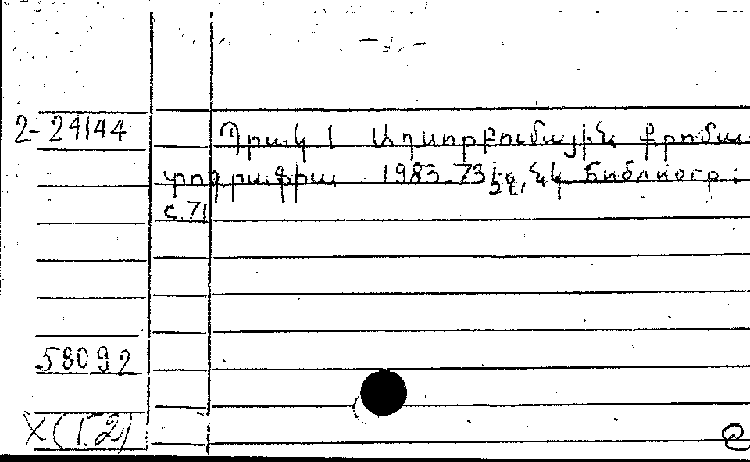 2-24144 Պրակ 1 Ադսորբումային քրոմա
տոգրաֆիա 1983. 73 էջ, նկ. Библиогр.:
с.71
58092
X(1.2)